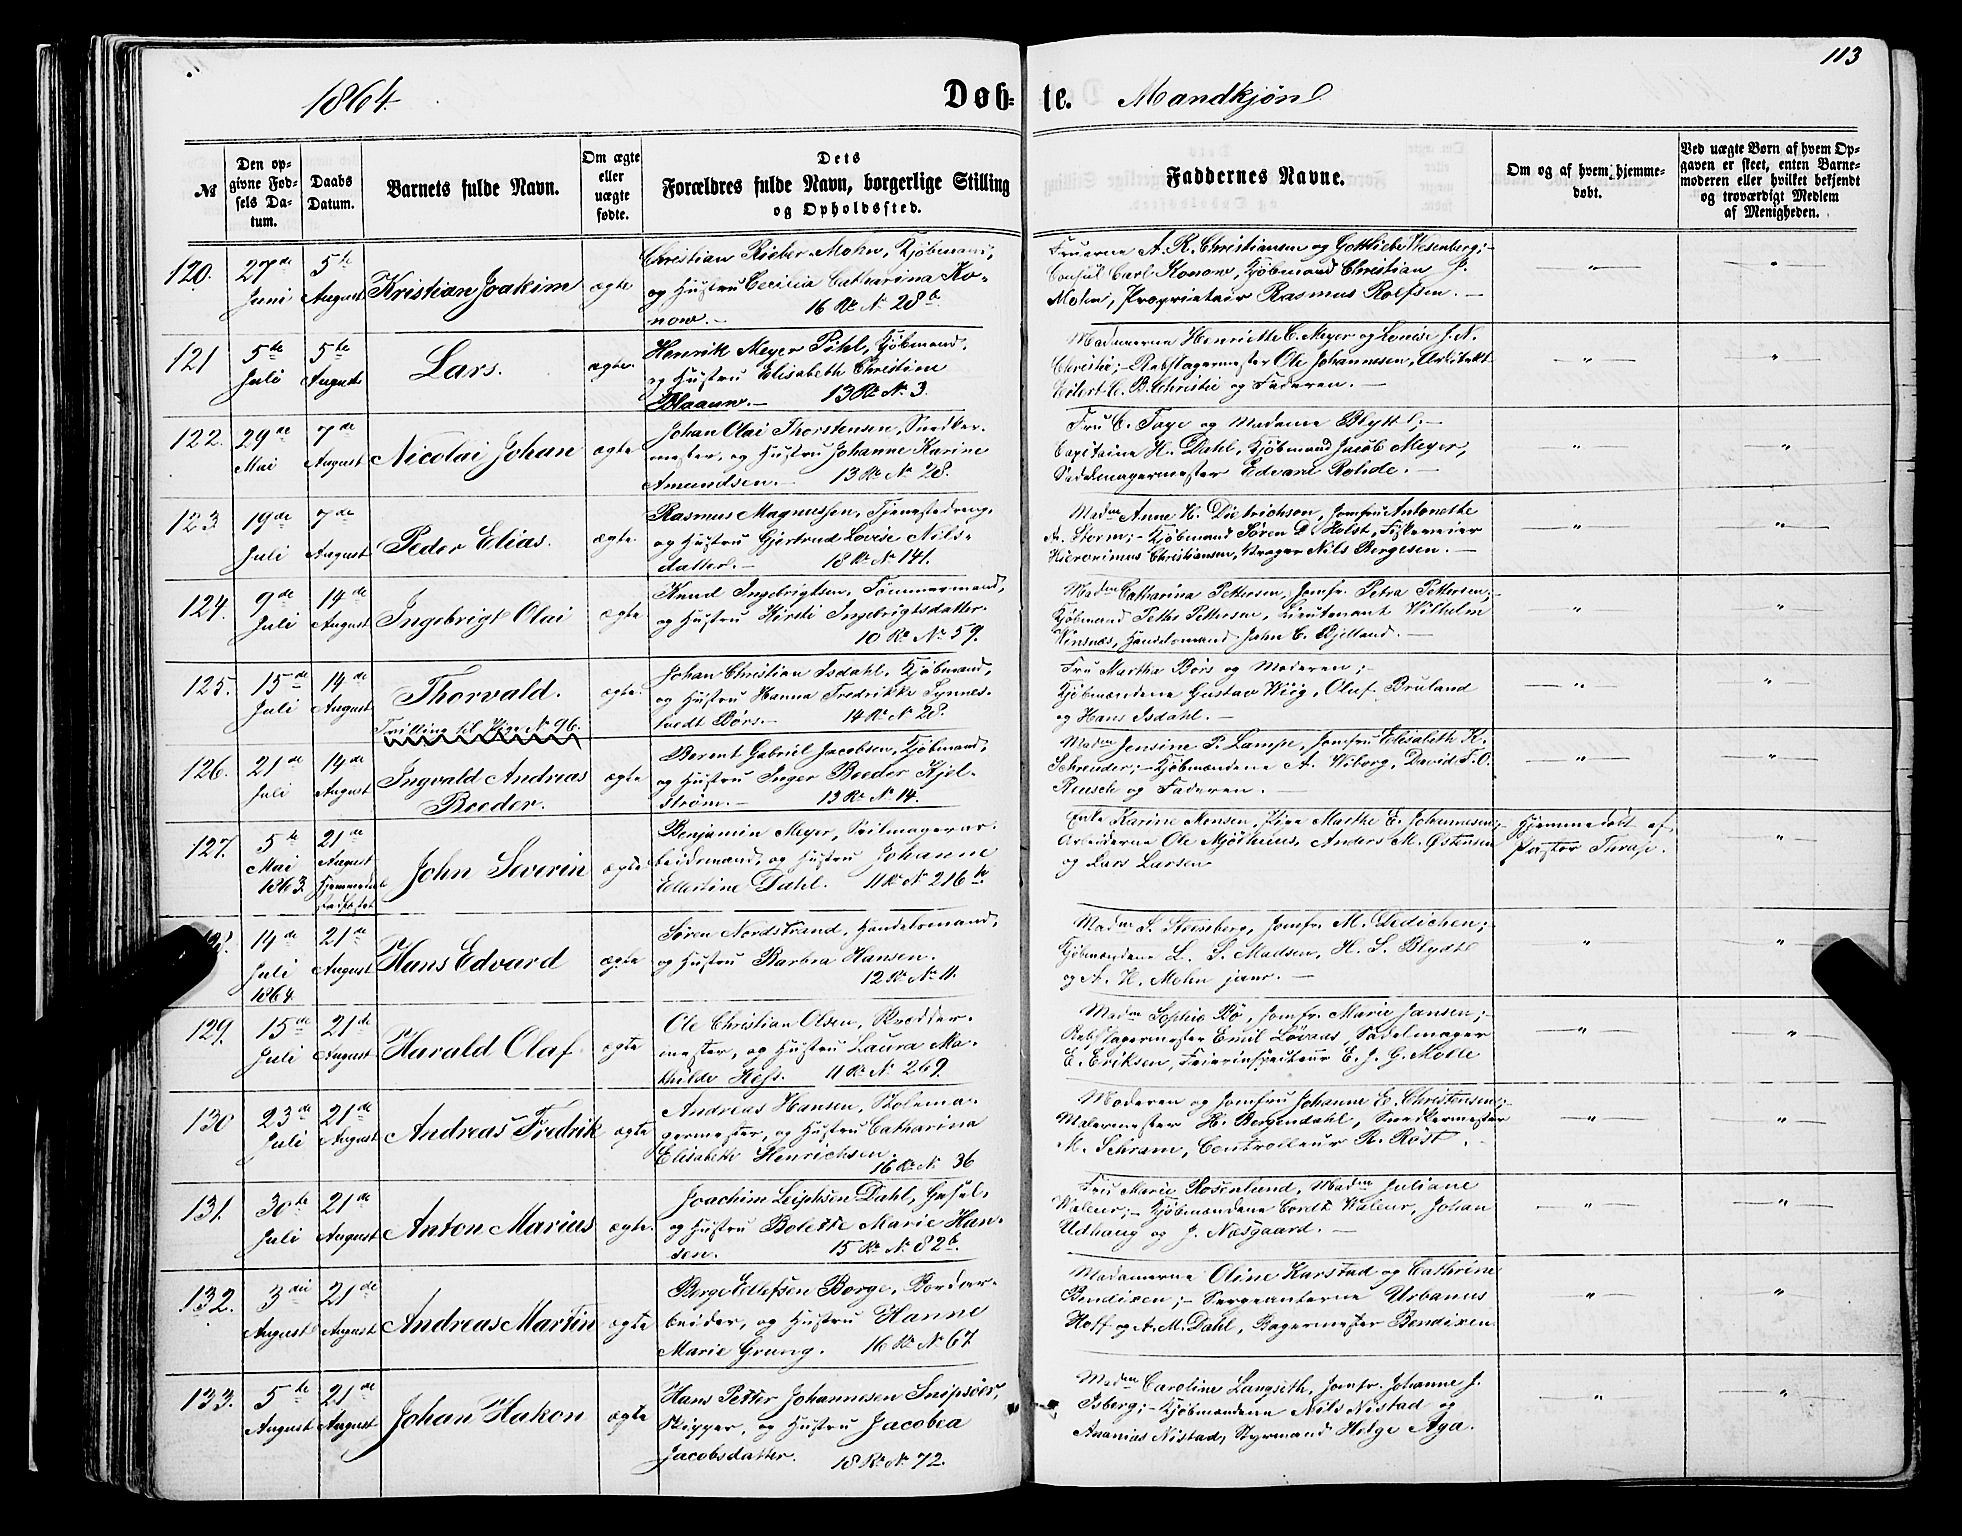 113
1864.
Døb-
te. Mandkjøn
№
Den op-
givne Fød-
sels Da-
tum.
Daabs
Datum.
Barnets fulde Navn.
Om ægte
eller
uægte
fødte.
Dets
Forældres fulde Navn, borgerlige Stilling
og Opholdssted.
Faddernes Navne.
Om og af hvem hjemme-
døbt.
Ved uægte Børn af hvem Op-
gaven er skeet, enten Barne-
moderen eller hvilket bekjendt
og troværdigt Medlem
af Menigheden.
120.
27de
Juni
5te
August
Kristian Joakim
ægte
Christian Rieber Mohn, Kjøbmand,
og Hustru Cecilia Catharina Ko-
now.- 16 Rd. № 28b
Fruerne A. R. Christiansen og Gottliebe Wesenberg;-
Consul Carl Konow, Kjøbmand Christian P.
Mohn, Proprietair Rasmus Rolfsen.-
121
5te
Juli
5te
August
Lars.
ægte.
Henrik Meyer Pihl, Kjøbmand,
og Hustru Elisabeth Christien
Blaauw.- 13 Rd. № 3.
Madamerne Henriette C. Meyer og Louise J. A.
Christie;- Rebslagermester Ole Johannesen, Arkitekt
Eilert C. B. Christie og Faderen.-
122.
29de
Mai
7de
August
Nicolai Johan
ægte
Johan Olai Thorstensen, Snedker-
mester, og Hustru Johanne Karine
Amundsen.- 13 Rd. № 28.
Fru C. Faye og Madame Blytt;-
Capitaine H. Dahl, Kjøbmand Jacob Meyer,
Sadelmagermester Edvard Rohde.-
123
19de
Juli
7de
August
Peder Elias.
ægte.
Rasmus Magnussen, Tjenestedreng,
og Hustru Gjertrud Lovise Nils-
datter.- 18 Rd. № 141.
Madm Anne H. Dietrichson, Jomfru Antonette
A. Storm;- Kjøbmand Søren D. Holst, Fiskereier
Hieronimus Christiansen, Vrager Nils Børgesen.-
124.
9de
Juli
14de
August
Ingebrigt Olai
ægte
Knud Ingebrigtsen, Tømmermand,
og Hustru Kirsti Ingebrigtsdatter.
10 Rd. № 59.
Madm Catharina Pettersen, Jomfr. Petra Pettersen;-
Kjøbmand Peths Pettersen, Lieutenant Wilhelm
Winsnæs, Handelsmand John C. Kjelland.-
125.
15de
Juli
14de
August
Thorvald.
Tvilling til Pige № 96.
ægte.
Johan Christian Isdahl, Kjøbmand,
og Hustru Hanna Fredrikke Synnes-
tvedt Børs.- 14 Rd. № 28.
Fru Martha Børs og Moderen;-
Kjøbmændene Gustav Wiig, Oluf Bruland
og Hans Isdahl.-
126.
21de
Juli
14de
August
Ingvald Andreas
Beeder.
ægte
Berent Gabriel Jacobsen, Kjøbmand,
og Hustru Inger Beeder Kjel-
strøm.- 13 Rd. № 14.
Madm Jensine P. Lampe, Jomfru Elisabeth K.
Schreuder;- Kjøbmændene A. Wiborg, David F. O.
Reusch og Faderen.-
127.
5te
Mai
1863.
21de
August
John Severin
ægte
Benjamin Meyer, Seilmagerar-
beidsmand, og Hustru Johanne
Ellertine Dahl. 11 Rd. № 216
Enke Karine Monsen, Pige Marthe E. Johannesen;-
Arbeiderne Ole Mjølhuus, Anders M. Østensen
og Lars Larsen
Hjemmedøbt af
Pastor Thrap.
14de
Juli
1864.
21de
August
Hans Edvard
ægte
Søren Nordstrand, Handelsmand,
og Hustru Barbra Hansen.
12 Rd. № 11.
Madm S. Steinberg, Jomfr. M. Didichen;
Kjøbmændene L. S. Madsen, H. S. Blydt
og A. H. Mohn junr.-
129.
15de
Juli
21de
August
Harald Olaf
ægte
Ole Christian Olsen, Skrædder-
mester, og Hustru Laura Ma-
thilde Hess. 11 Rd. № 269.
Madm Sophie Bø, Jomfr. Marie Jansen;-
Rebslagermester Emil Løvaas, Sadelmager
E. Eriksen, Feierinspecteur E. J. G. Molle
130
23de
Juli
21de
August
Andreas Fredrik
ægte
Andreas Hansen, Stolema-
germester, og Hustru Catharina
Elisabeth Henrichsen.
16 Rd. № 36
Moderen og Jomfru Johanne E. Christensen;-
Malermester H. Bergendahl, Snedkermester
M. Schram, Controlleur R. Røst.
131.
30te
Juli
21de
August
Anton Marius
ægte.
Joachim Leiphsen Dahl, Gesel,
og Hustru Bolette Marie Han-
sen. 15 Rd. № 82b.
Fru Marie Rosenlund, Madm Juliane
Waleur;- Kjøbmændene Cordt Waleur, Johan
Udhaug og J. Næsgaard.-
132.
3die
August
21de
August
Andreas Martin
ægte
Berge Ellefsen Borge, Bordar-
beider, og Hustru Hanne
Marie Grung. 16 Rd. № 67.
Madamerne Oline Karstad og Cathrine
Bendixen;- Sergeanterne Urbanus
Hoff og A. M. Dahl, Bagermester Bendixen
133.
5te
August
21de
August
Johan Hakon
ægte
Hans Petter Johannesen Snipsøer,
Skipper, og Hustru Jacobea
Jacobsdatter. 18 Rd. № 72.
Madm Caroline Langseth, Jomfr. Johanne J.
Isberg;- Kjøbmændene Nils Nistad og
Ananias Nistad, Styrmand Helge Aga.